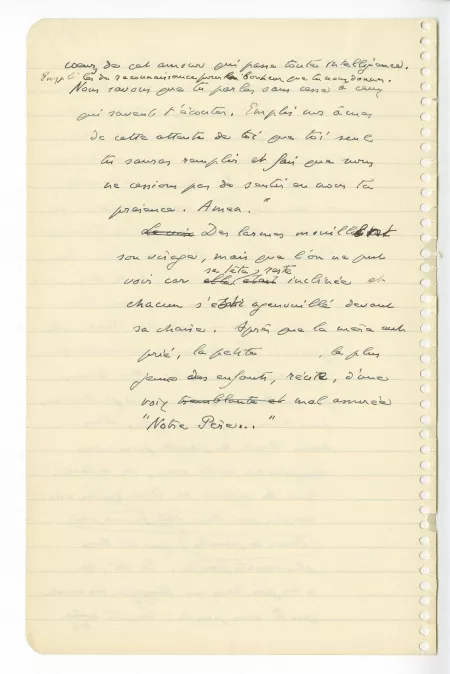 coeurs de cet amour qui passe toute intelligence.
Emplis les de reconnaissance pour le bonheur que tu nous donnes.
Nous savons que tu parles sans cesse à ceux
qui savent t'écouter. Emplis nos âmes
de cette attente de toi que toi seul
tu sauras remplir et fais que nous
ne cessions pas de sentir en nous ta
présence. Amen."
Des larmes mouillent
son visage, mais que l'on ne peut
sa tête reste
voir car elle était inclinée et
chacun s'est agenouillé devant
sa chaise. Après que la mère eut
prié, la petite , la plus
jeune des enfants, récite, d'une
voix tremblante et mal assurée
"Notre Père..."